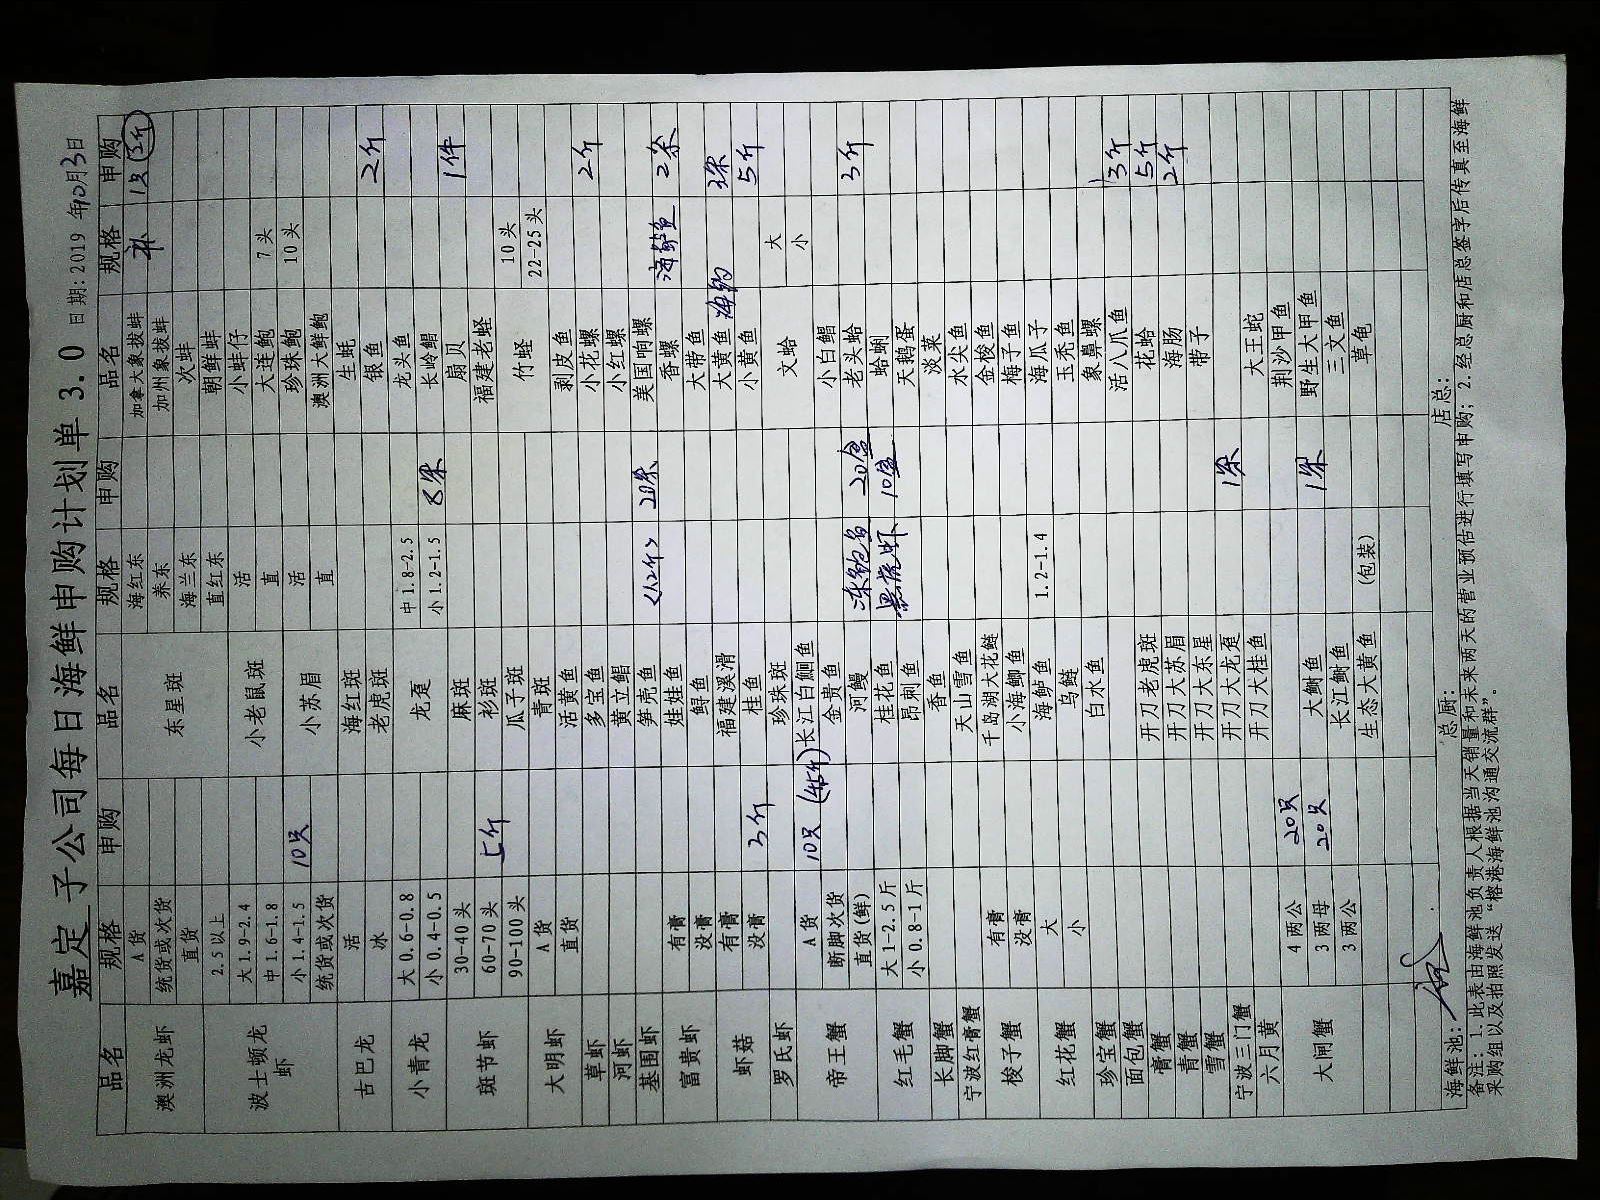 嘉定子公司每日海鲜申购计划单 3.0 日期:2019年10月3日
品名 规格 申购 品名 规格 申购 品名 规格 申购
A货 海红东 加拿大象拔蚌 补 1只 (2斤)
澳洲龙虾 统货或次货 东星斑 养东 加州象拔蚌
直货 海兰东 次蚌
2.5以上 直红东 朝鲜蚌
大1.9-2.4 小老鼠斑 活 小蚌仔
波士顿龙虾 中1.6-1.8 直 大连鲍 7头
小1.4-1.5 10只 小苏眉 活 珍珠鲍 10头
统货或次货 直 澳洲大鲜鲍
古巴龙 活 海红斑 生蚝
冰 老虎斑 银鱼 2斤
小青龙 大0.6-0.8 龙趸 中1.8-2.5 龙头鱼
小0.4-0.5 小1.2-1.5 8条 长岭鲳
30-40头 麻斑 扇贝 1件
斑节虾 60-70头 5斤 杉斑 福建老蛏
90-100头 瓜子斑 竹蛏 10头
大明虾 A货 青斑 22-25头
直货 活黄鱼 剥皮鱼
草虾 多宝鱼 小花螺 2斤
河虾 黄立鲳 小红螺
基围虾 笋壳鱼 <1.2斤> 20条 美国响螺
富贵虾 有膏 娃娃鱼 香螺 海鲈鱼 2条
没膏 鲟鱼 大带鱼
虾菇 有膏 福建溪滑 大黄鱼 海钓 3条
没膏 3斤 桂鱼 小黄鱼 5斤
罗氏虾 珍珠斑 文蛤 大
A货 10只 (4.5斤) 长江白鮰鱼 小
帝王蟹 断脚次货 金贵鱼 小白鲳
直货(鲜) 河鳗 冻鲍鱼 20盒 老头蛤 3斤
红毛蟹 大1-2.5斤 桂花鱼 黑虎虾 10盒 蛤蜊
小0.8-1斤 昂刺鱼 天鹅蛋
长脚蟹 香鱼 淡菜
宁波红膏蟹 天山雪鱼 水尖鱼
梭子蟹 有膏 千岛湖大花鲢 金梭鱼
没膏 小海鲫鱼 梅子鱼
红花蟹 大 海鲈鱼 1.2-1.4 海瓜子
小 乌鲢 玉秃鱼
珍宝蟹 白水鱼 象鼻螺
面包蟹 活八爪鱼 3斤
膏蟹 开刀老虎斑 花蛤 5斤
青蟹 开刀大苏眉 海肠 2斤
雪蟹 开刀大东星 带子
宁波三门蟹 开刀大龙趸 1条
六月黄 开刀大桂鱼 大王蛇
4两公 20只 荆沙甲鱼
大闸蟹 3两母 20只 大鲥鱼 1条 野生大甲鱼
3两公 长江鲥鱼 三文鱼
生态大黄鱼 (包装) 草龟
海鲜池: 总厨: 店总:
备注: 1.此表由海鲜池负责人根据当天销量和未来两天的营业预估进行填写申购; 2.经总厨和店总签字后传真至海鲜
采购组以及拍照发送“榕港海鲜池沟通交流群”。